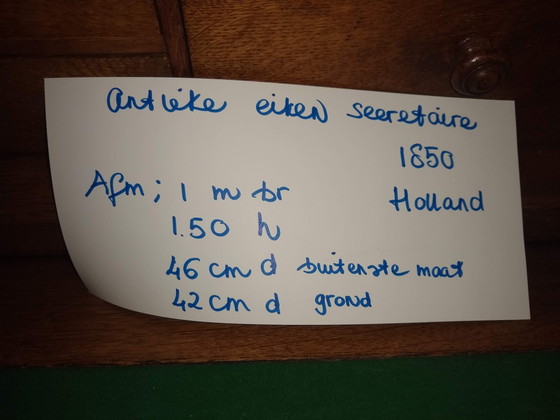 Antieke eiken secretaire
1850
Afm; 1 m br Holland
1.50 h
46 cm d buitenste maat
42 cm d grond